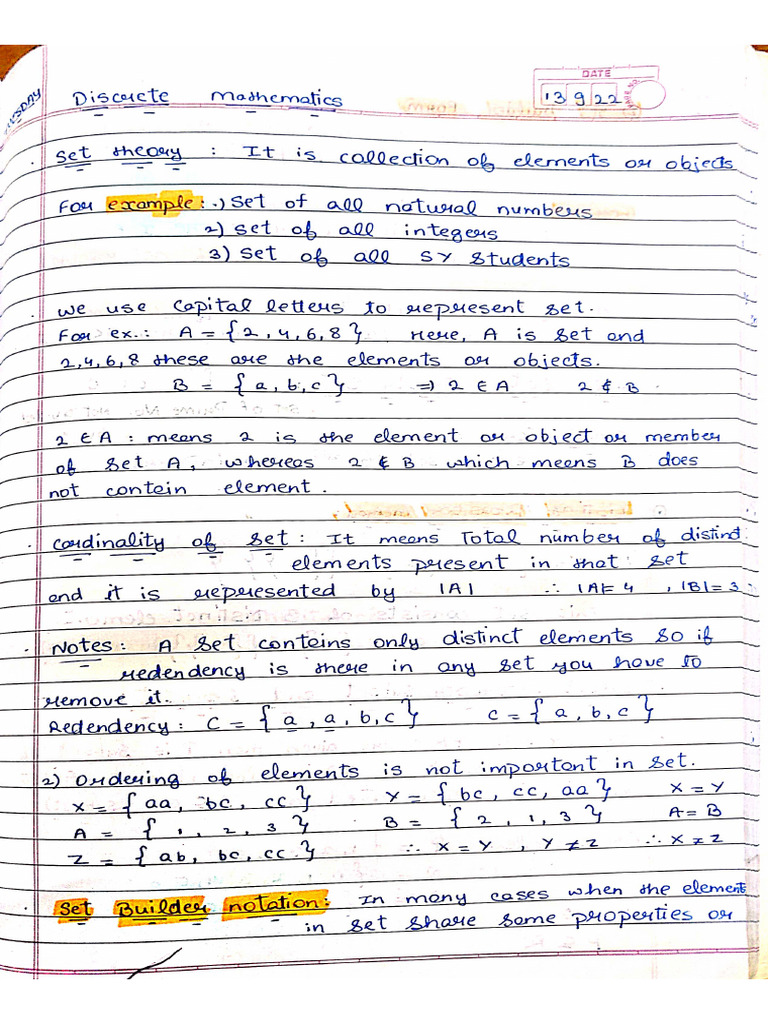 DATE
TUESDAY
Discrete Mathematics
13 9 22
Set theory : It is collection of elements or objects
For example : 1) Set of all natural numbers
2) Set of all integers
3) Set of all SY Students
We use Capital letters to represent set.
For ex.: A = {2, 4, 6, 8} Here, A is Set and
2,4,6,8 these are the elements or objects.
B = {a, b, c} ⇒ 2 ∈ A 2 ∉ B
2 ∈ A : means 2 is the element or object or member
of set A, whereas 2 ∉ B which means B does
not contein element.
Cardinality of Set : It means Total number of distinct
elements present in that set
and it is represented by |A| ∴ |A|= 4 , |B|= 3
Notes : A set conteins only distinct elements so if
redendency is there in any set you have to
remove it.
Redendency : C = {a, a, b, c} C = {a, b, c}
2) Ordering of elements is not important in set.
X = {aa, bc, cc} Y = {bc, cc, aa} X = Y
A = {1, 2, 3} B = {2, 1, 3} A = B
Z = {ab, bc, cc} ∴ X = Y , Y ≠ Z ∴ X ≠ Z
Set Builder notation : In many cases when the element
in set share some properties or